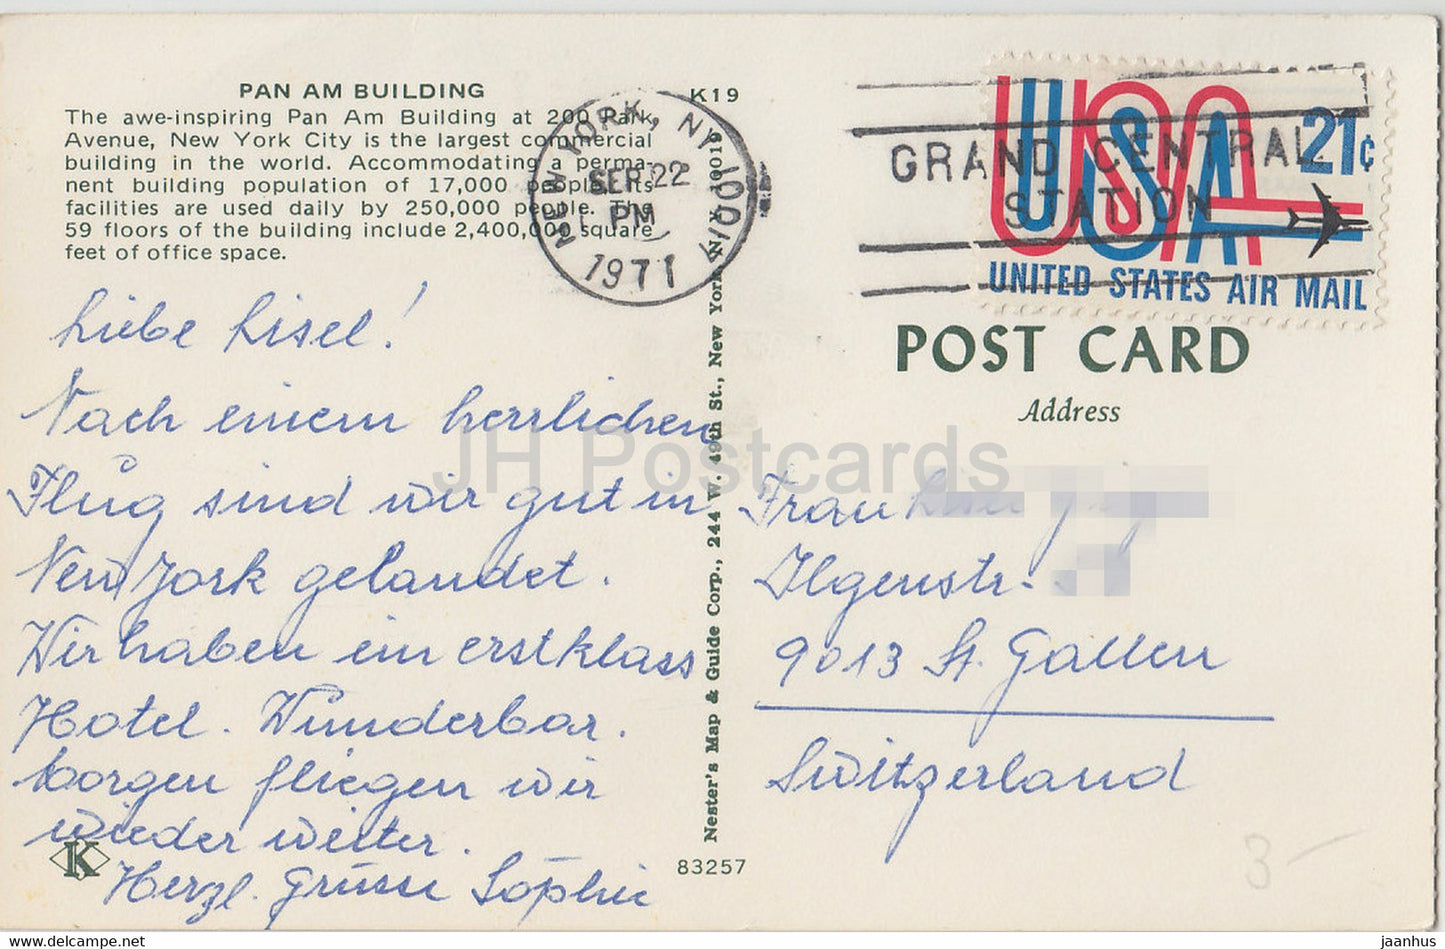 PAN AM BUILDING
The awe-inspiring Pan Am Building at 200 Park
Avenue, New York City is the largest commercial
building in the world. Accommodating a perma-
nent building population of 17,000 people. Its
facilities are used daily by 250,000 people. The
59 floors of the building include 2,400,000 square
feet of office space.
K19
NEW YORK, NY 10017
SEP 22
PM
1971
GRAND CENTRAL
STATION
USA
21¢
UNITED STATES AIR MAIL
POST CARD
Address
Liebe Lisel!
Nach einem herrlichen
Flug sind wir gut in
New York gelandet.
Wir haben ein erstklass
Hotel. Wunderbar.
Morgen fliegen wir
wieder weiter.
Herzl. Grüsse Sophie
Frau
Ilgenstr.
9013 St. Gallen
Switzerland
Nester's Map & Guide Corp., 244 W. 49th St., New York, N.Y. 10019
K
83257
3-
JH Postcards
https://www.delcampe.net
jaanhus